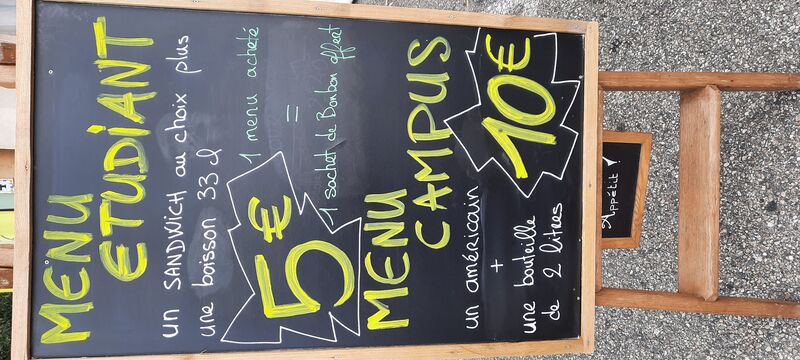 MENU
ETUDIANT
un SANDWICH au choix plus
une boisson 33 cl
5€
1 menu acheté
=
1 sachet de Bonbon offert
MENU
CAMPUS
10€
un américain
+
une bouteille
de 2 litres
Appétit !